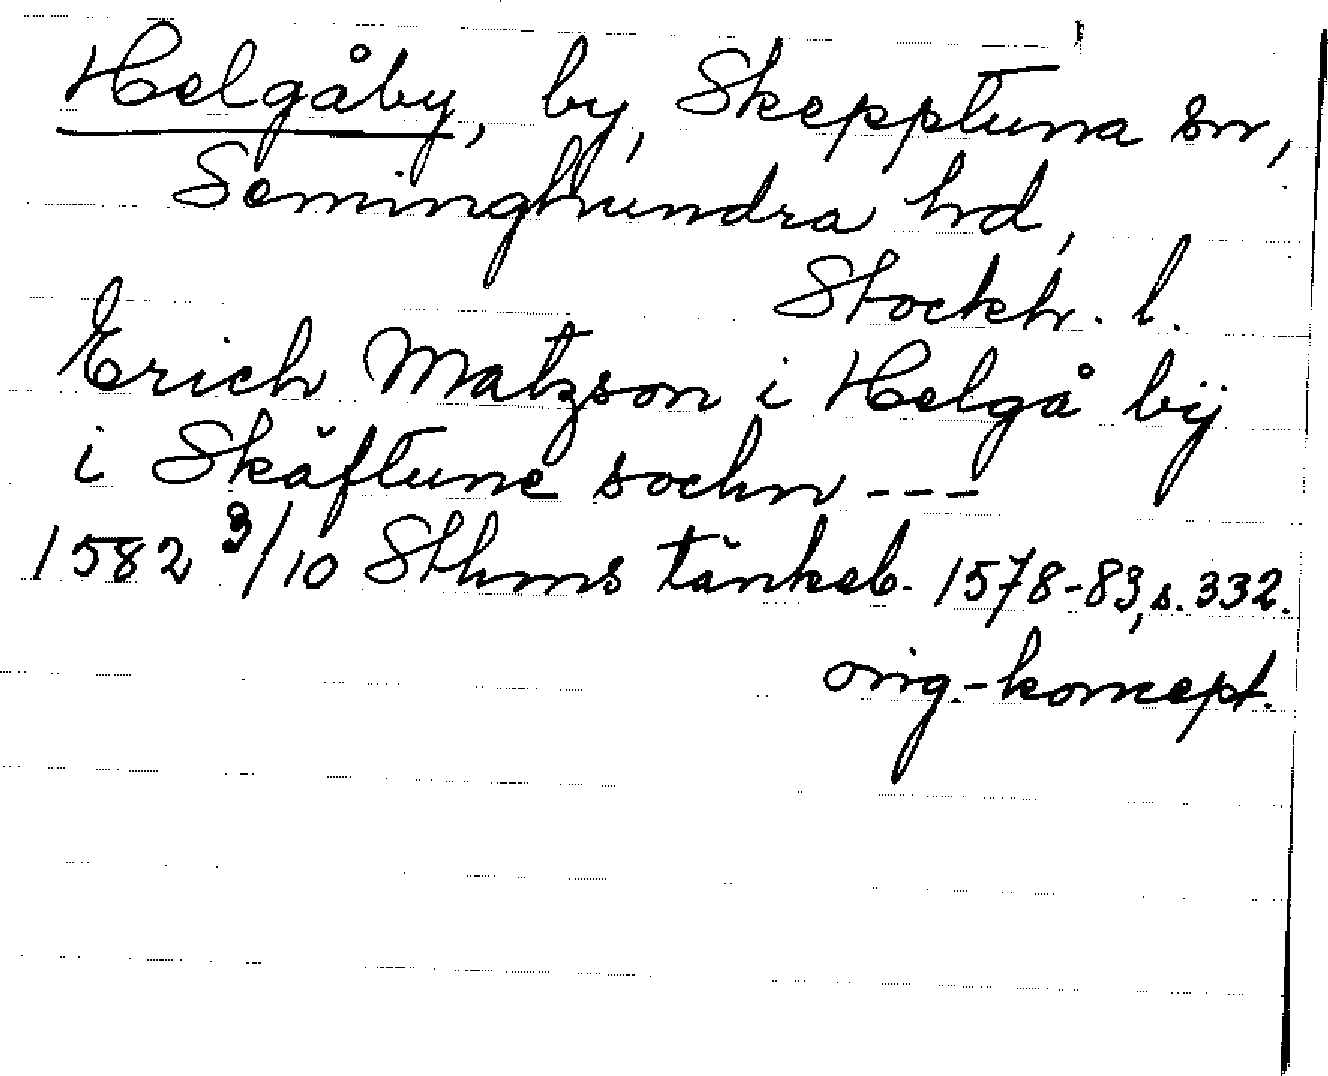 Helgåby, by, Skepptuna sn,
Seminghundra hd,
Stockh. l.
Erich Matzson i Helgå bÿ
i Skäftune sochn ---
1582 3/10 Sthms tänkeb. 1578-83, s. 332.
orig.-koncept.